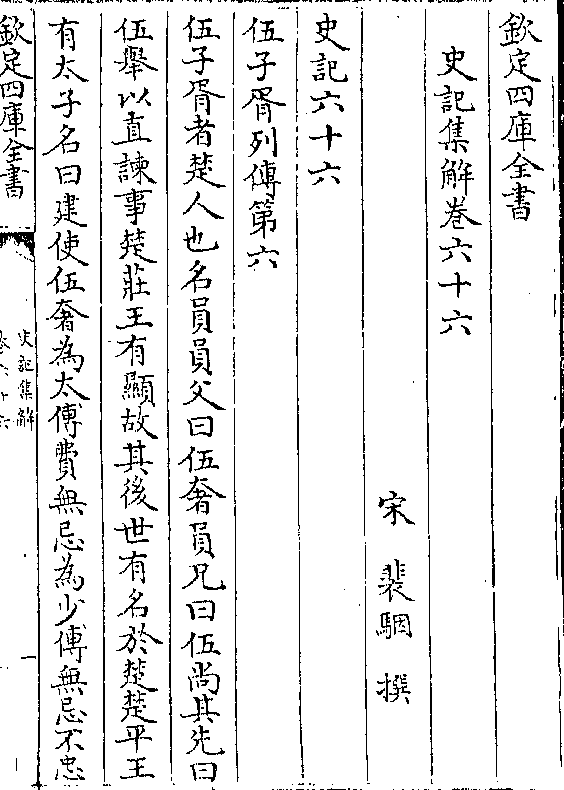 欽定四庫全書
史記集解卷六十六
宋 裴駰 撰
史記六十六
伍子胥列傳第六
伍子胥者楚人也名員員父曰伍奢員兄曰伍尚其先曰
伍舉以直諫事楚莊王有顯故其後世有名於楚楚平王
有太子名曰建使伍奢為太傅費無忌為少傅無忌不忠
欽定四庫全書
史記集解
卷六十六
一